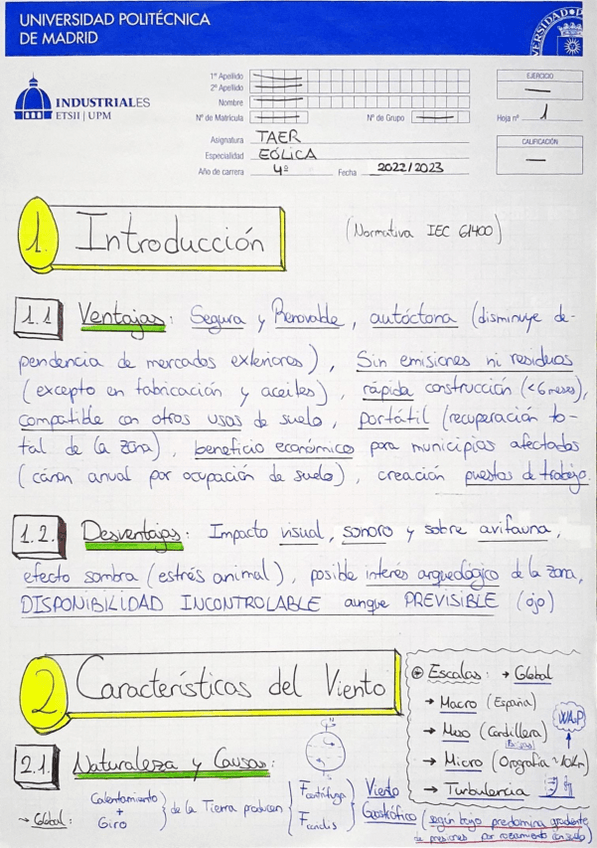 UNIVERSIDAD POLITÉCNICA
DE MADRID
INDUSTRIALES
ETSII | UPM
1º Apellido
2º Apellido
Nombre
Nº de Matrícula
Nº de Grupo
Asignatura TAER
Especialidad EÓLICA
Año de carrera 4º Fecha 2022/2023
EJERCICIO
Hoja nº 1
CALIFICACIÓN
1. Introducción
(Normativa IEC 61400)
1.1 Ventajas: Segura y Renovable, autóctona (disminuye de-
pendencia de mercados exteriores), Sin emisiones ni residuos
(excepto en fabricación y aceites), rápida construcción (<6 meses),
compatible con otros usos de suelo, portátil (recuperación to-
tal de la zona), beneficio económico para municipios afectados
(cánon anual por ocupación de suelo), creación puestos de trabajo.
1.2. Desventajas: Impacto visual, sonoro y sobre avifauna,
efecto sombra (estrés animal), posible interés arqueológico de la zona,
DISPONIBILIDAD INCONTROLABLE aunque PREVISIBLE (ojo)
2 Características del Viento
Escalas: → Global
→ Macro (España)
→ Meso (Cordillera)
→ Micro (Orografía ~10Km)
→ Turbulencia
WAsP
2.1. Naturaleza y Causas:
→ Global: Calentamiento + Giro } de la Tierra producen { Fcentrífuga Fcoriolis } Viento
Geostrófico (según bajo predomina gradiente
de presiones por rozamiento con suelo)